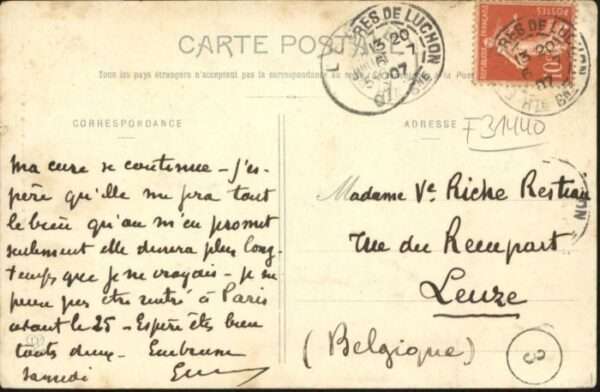 CARTE POSTALE
Tous les pays étrangers n'acceptent pas la correspondance au
CORRESPONDANCE
ADRESSE
F31440
RES DE LUCHON
13 20
6 7
07
Gne
RÉPUBLIQUE FRANÇAISE
POSTES
10
Ma cure se continue – j'es-
père qu'elle me fra tout
le bien qu'on m'en promet
seulement elle durera plus long-
temps que je ne croyais – je ne
pense pas être rentré à Paris
avant le 25 – Espère êtes bien
toutes deux – Embrasse
Samedi
Madame Ve Riche Restiau
Rue du Rempart
Leuze
(Belgique)
3